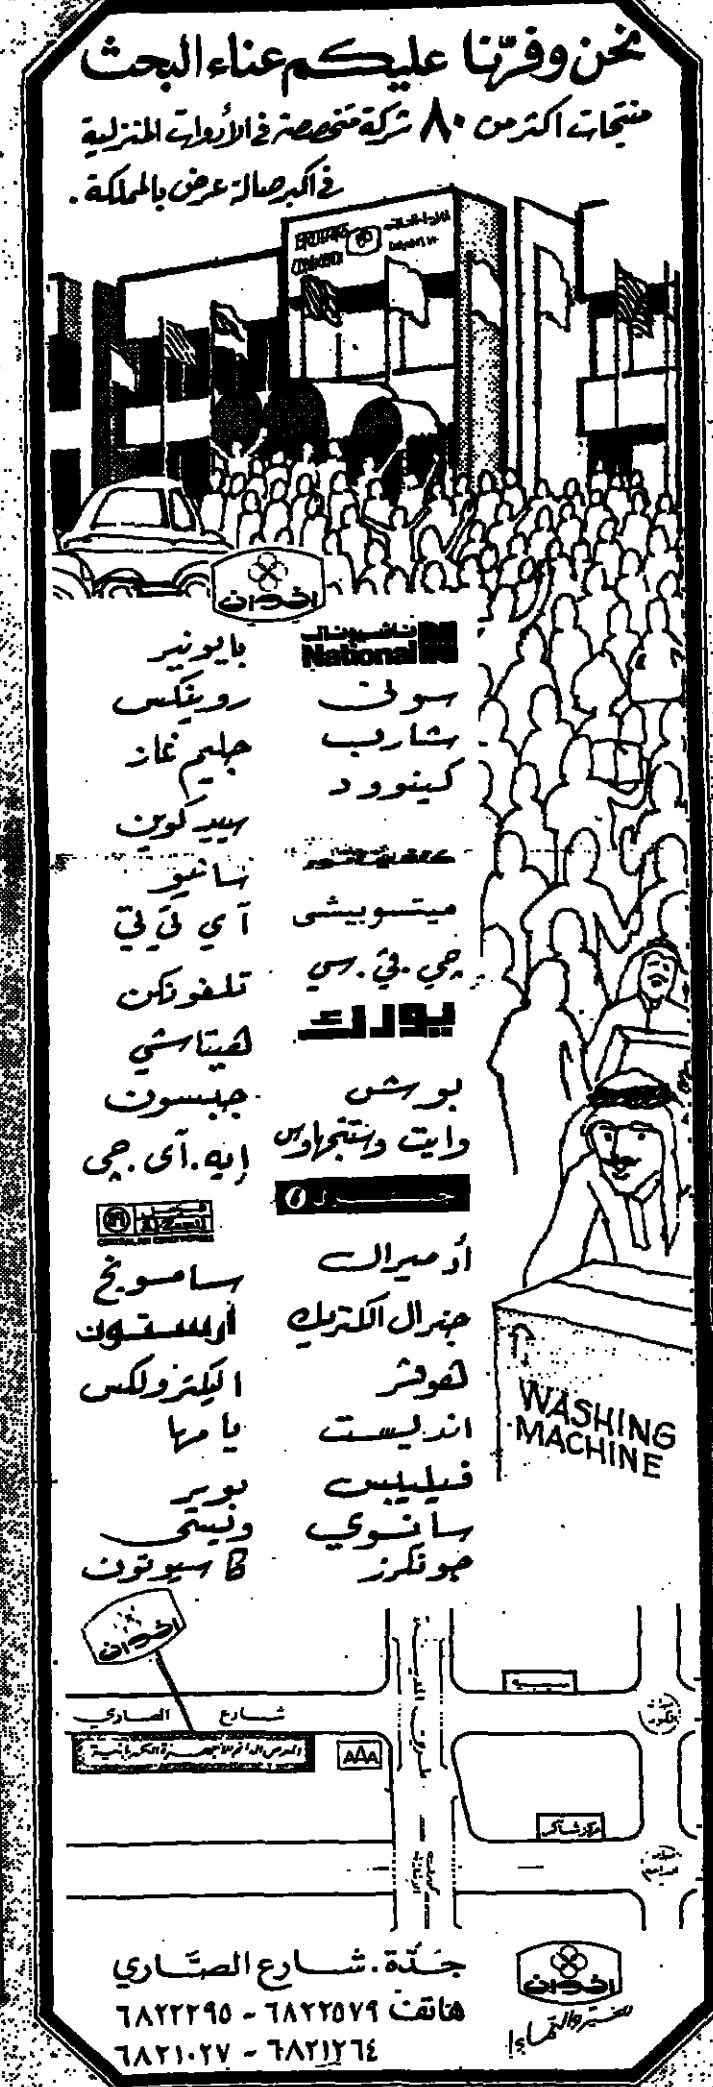 نحن وفرّنا عليكم عناء البحث
منتجات اكثر من ٨٠ شركة متخصصة في الأدوات المنزلية
في اكبر صالة عرض بالمملكة .
ناشيونال
National
سوني
شارب
كينوود
ميتسوبيشي
جي . في . سي
يورك
بوش
وايت وستنجهاوس
جنرال
أدميرال
جنرال الكتريك
هوفر
اندیست
فيليبس
سانوي
جونكرز
بايونير
روينكس
جليم غاز
سيدكوين
سانيو
آي تي تي
تلفونكن
هيتاشي
جبسون
إيه . آی . جي
سامسونج
أريستون
اليكترولكس
يامها
بوير
ونیسی
کاسيوتون
WASHING
MACHINE
شارع الصاري
AAA
مركز شاكر
جدّة . شارع الصّاري
هاتف ٦٨٢٢٥٧٩ - ٦٨٢٢٢٩٥
٦٨٢١٢٦٤ - ٦٨٢١٠٢٧